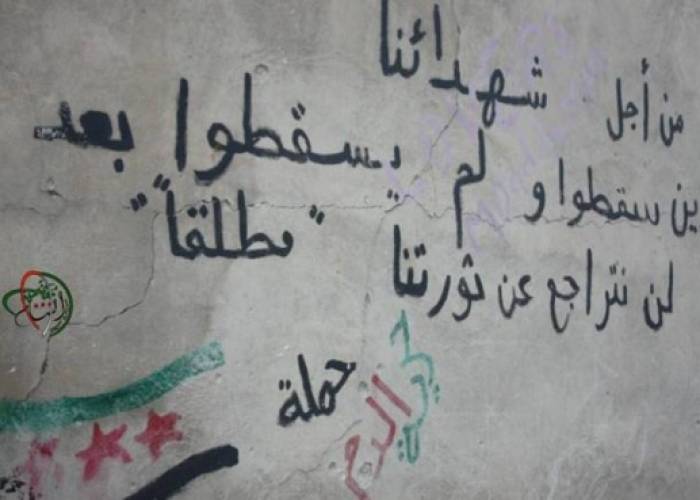 من أجل شهدائنا
ين سقطوا و لم يسقطوا بعد
لن نتراجع عن ثورتنا "مطلقاً"
حملة
الدم